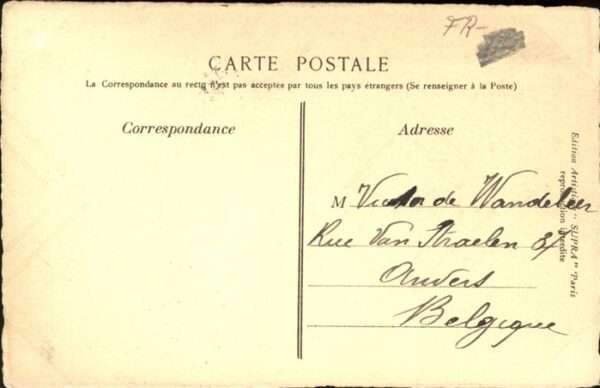 FR-
CARTE POSTALE
La Correspondance au recto n'est pas acceptée par tous les pays étrangers (Se renseigner à la Poste)
Correspondance
Adresse
M Victor de Wandeleer
Rue Van Straelen 37
Anvers
Belgique
Edition Artistique "SUPRA" Paris
reproduction interdite